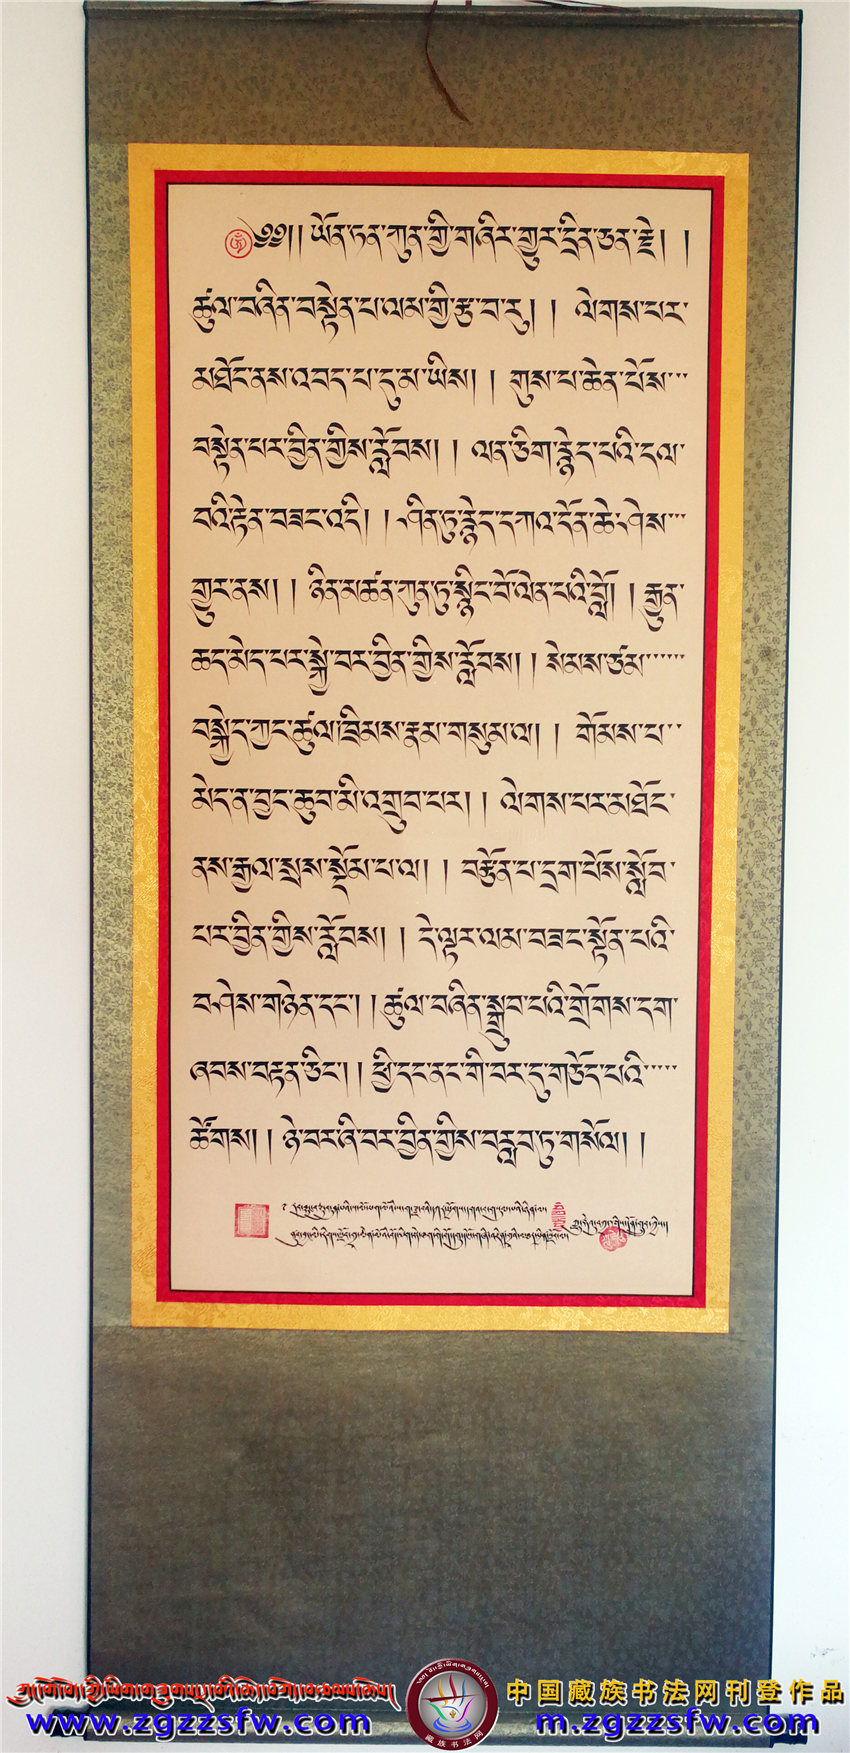 ༄༅།། ཡོན་ཏན་ཀུན་གྱི་གཞིར་གྱུར་དྲིན་ཅན་རྗེ། །
ཚུལ་བཞིན་བསྟེན་པ་ལམ་གྱི་རྩ་བ་རུ། ། ལེགས་པར་
མཐོང་ནས་འབད་པ་དུ་མ་ཡིས། ། གུས་པ་ཆེན་པོས་
བསྟེན་པར་བྱིན་གྱིས་རློབས། ། ལན་ཅིག་རྙེད་པའི་དལ་
བའི་རྟེན་བཟང་འདི། ། ཤིན་ཏུ་རྙེད་དཀའ་དོན་ཆེ་ཤེས་
གྱུར་ནས། ། ཉིན་མཚན་ཀུན་ཏུ་སྙིང་པོ་ལེན་པའི་བློ། ། རྒྱུན་
ཆད་མེད་པར་སྐྱེ་བར་བྱིན་གྱིས་རློབས། ། སེམས་ཙམ་
བསྐྱེད་ཀྱང་ཚུལ་ཁྲིམས་རྣམ་གསུམ་ལ། ། གོམས་པ་
མེད་ན་བྱང་ཆུབ་མི་འགྲུབ་པར། ། ལེགས་པར་མཐོང་
ནས་རྒྱལ་སྲས་སྡོམ་པ་ལ། ། བརྩོན་པ་དྲག་པོས་སློབ་
པར་བྱིན་གྱིས་རློབས། ། དེ་ལྟར་ལམ་བཟང་སྟོན་པའི་
བཤེས་གཉེན་དང་། ། ཚུལ་བཞིན་སྒྲུབ་པའི་གྲོགས་དག་
ཞབས་བརྟན་ཅིང་། ། ཕྱི་དང་ནང་གི་བར་དུ་གཅོད་པའི་
ཚོགས། ། ཉེ་བར་ཞི་བར་བྱིན་གྱིས་བརླབ་ཏུ་གསོལ། །
中国藏族书法网刊登作品
www.zgzzsfw.com
藏族书法网
m.zgzzsfw.com